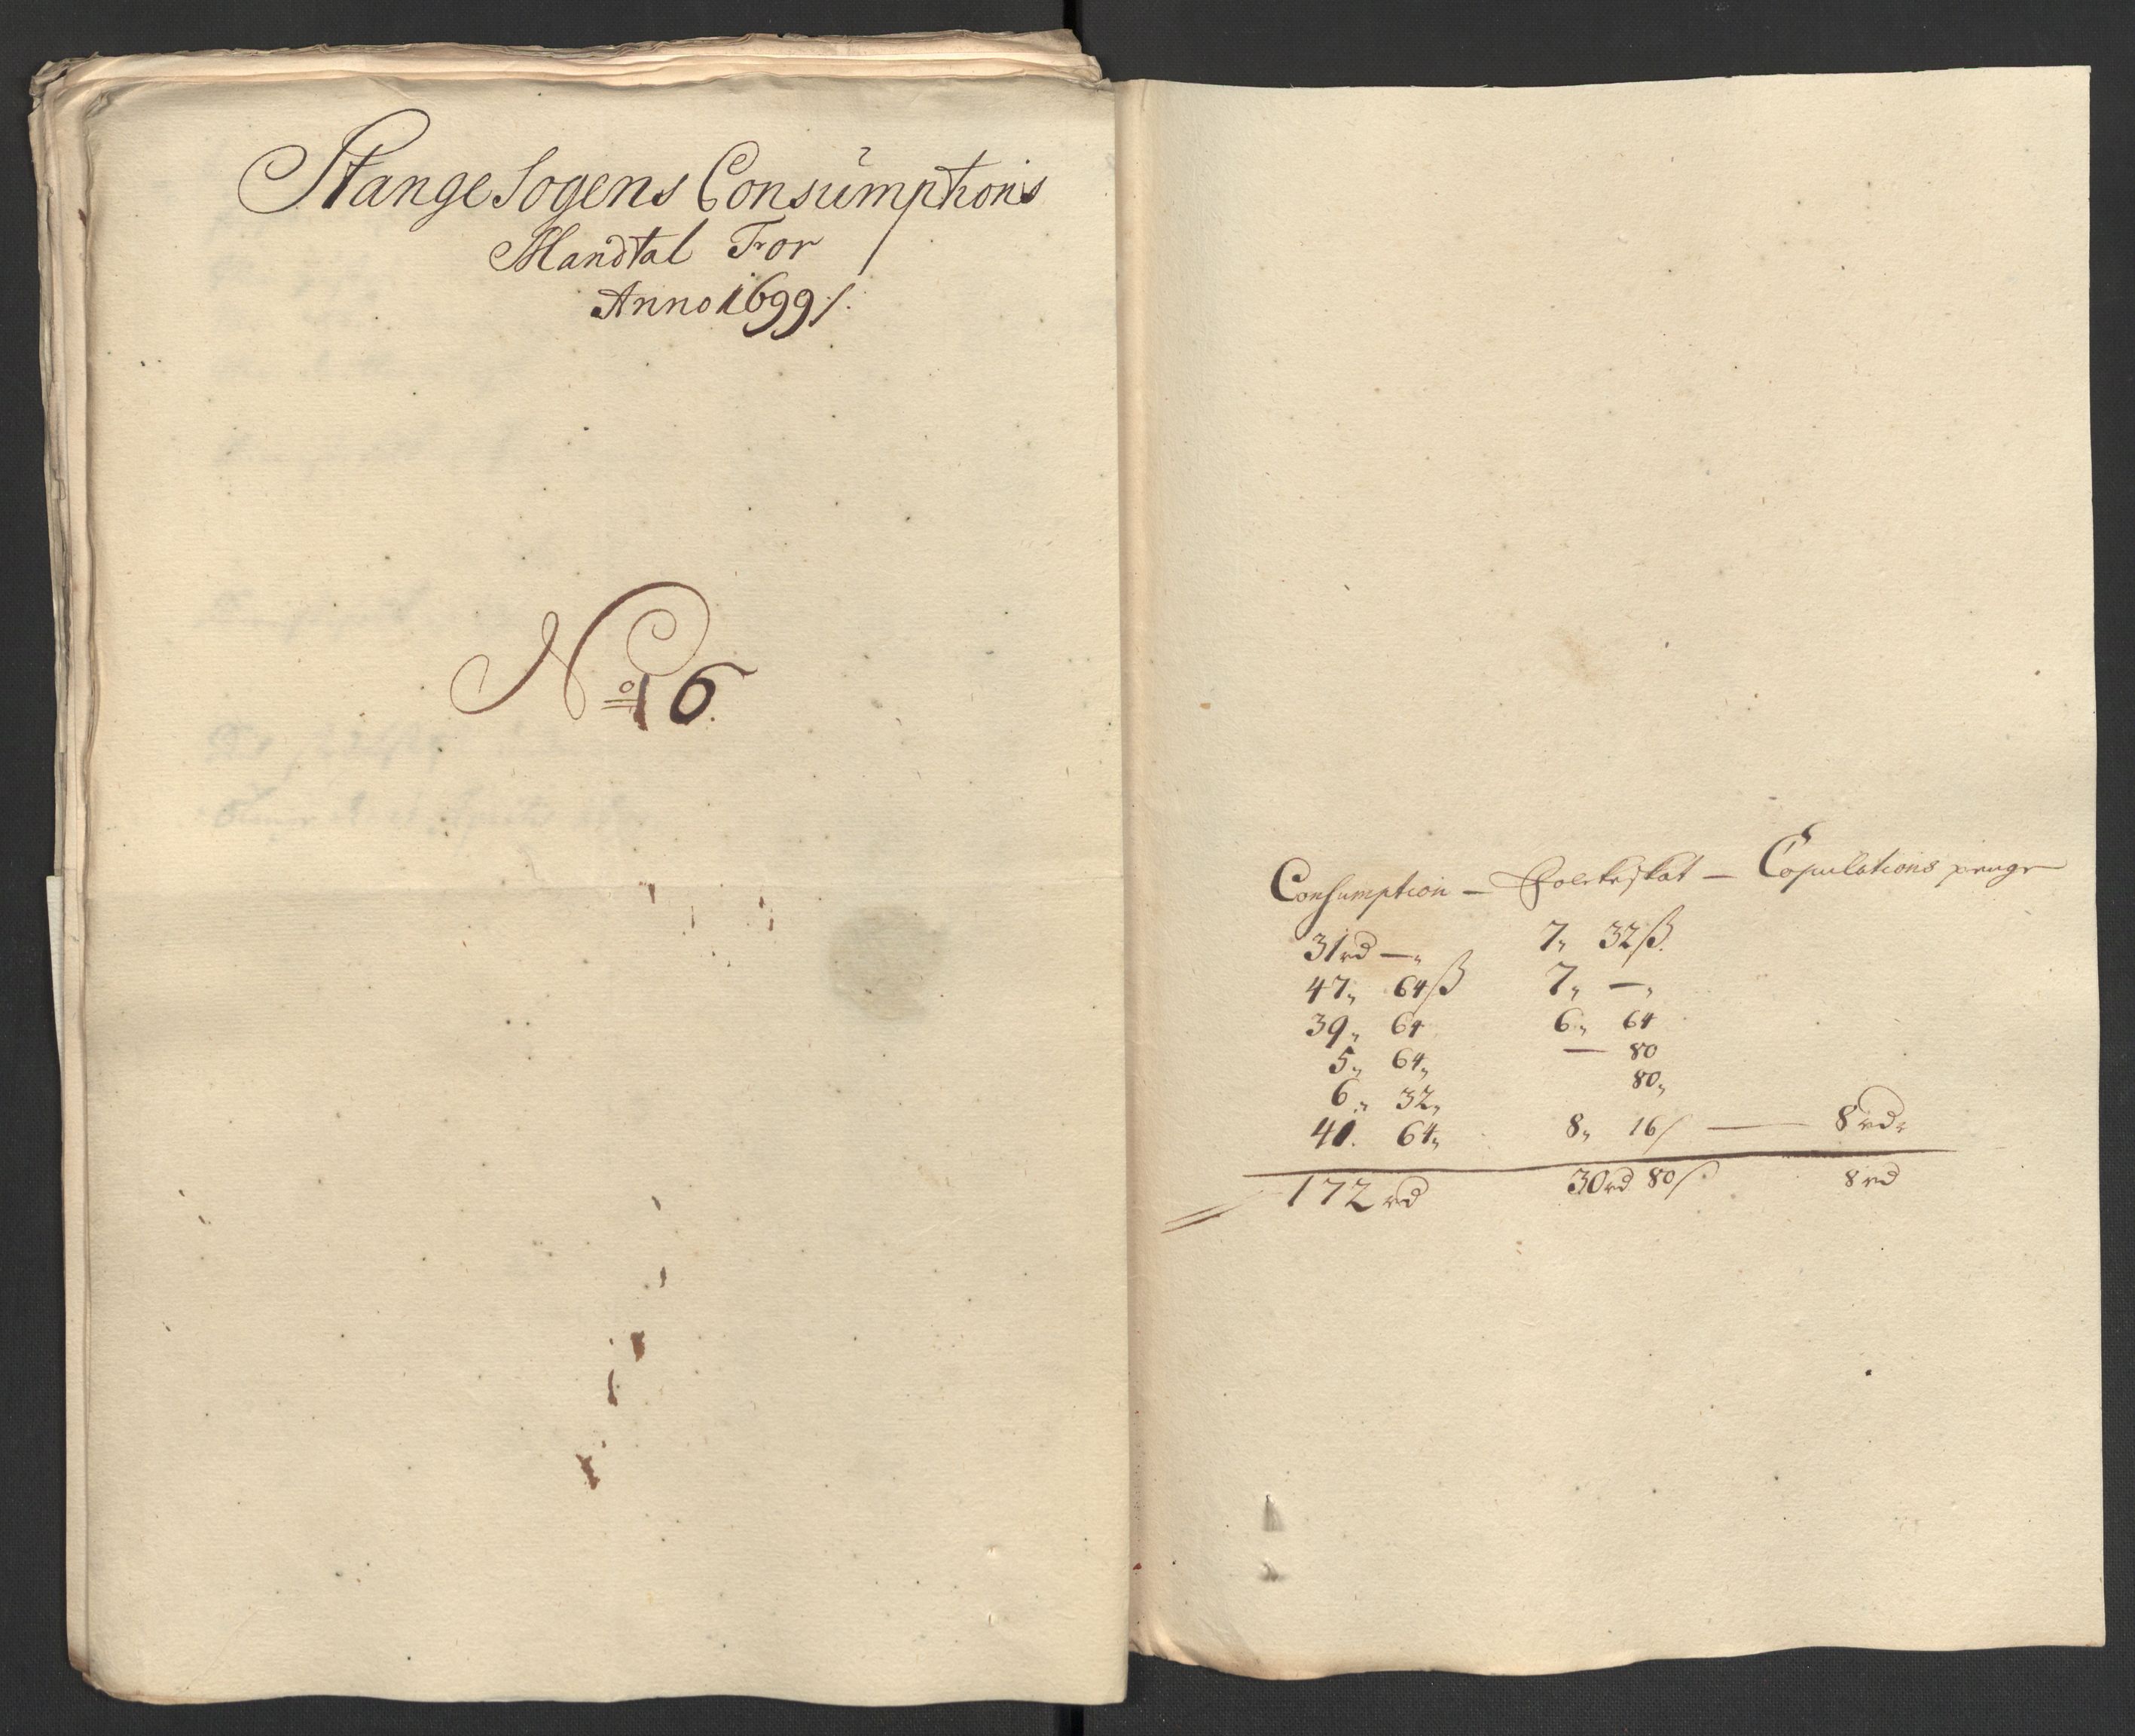 Stange Sogens Consumptions
Mandtal For
Anno 1699 /.
No 16.
Consumption — Folckeskat — Copulations penge
31 rd — „ 7„ 32 ß.
47„ 64 ß 7„ — „
39„ 64 6„ 64
5„ 64„ — 80
6„ 32„ 80„
41. 64„ 8„ 16 ß — 8 rd„
172 rd 30 rd 80 ß 8 rd